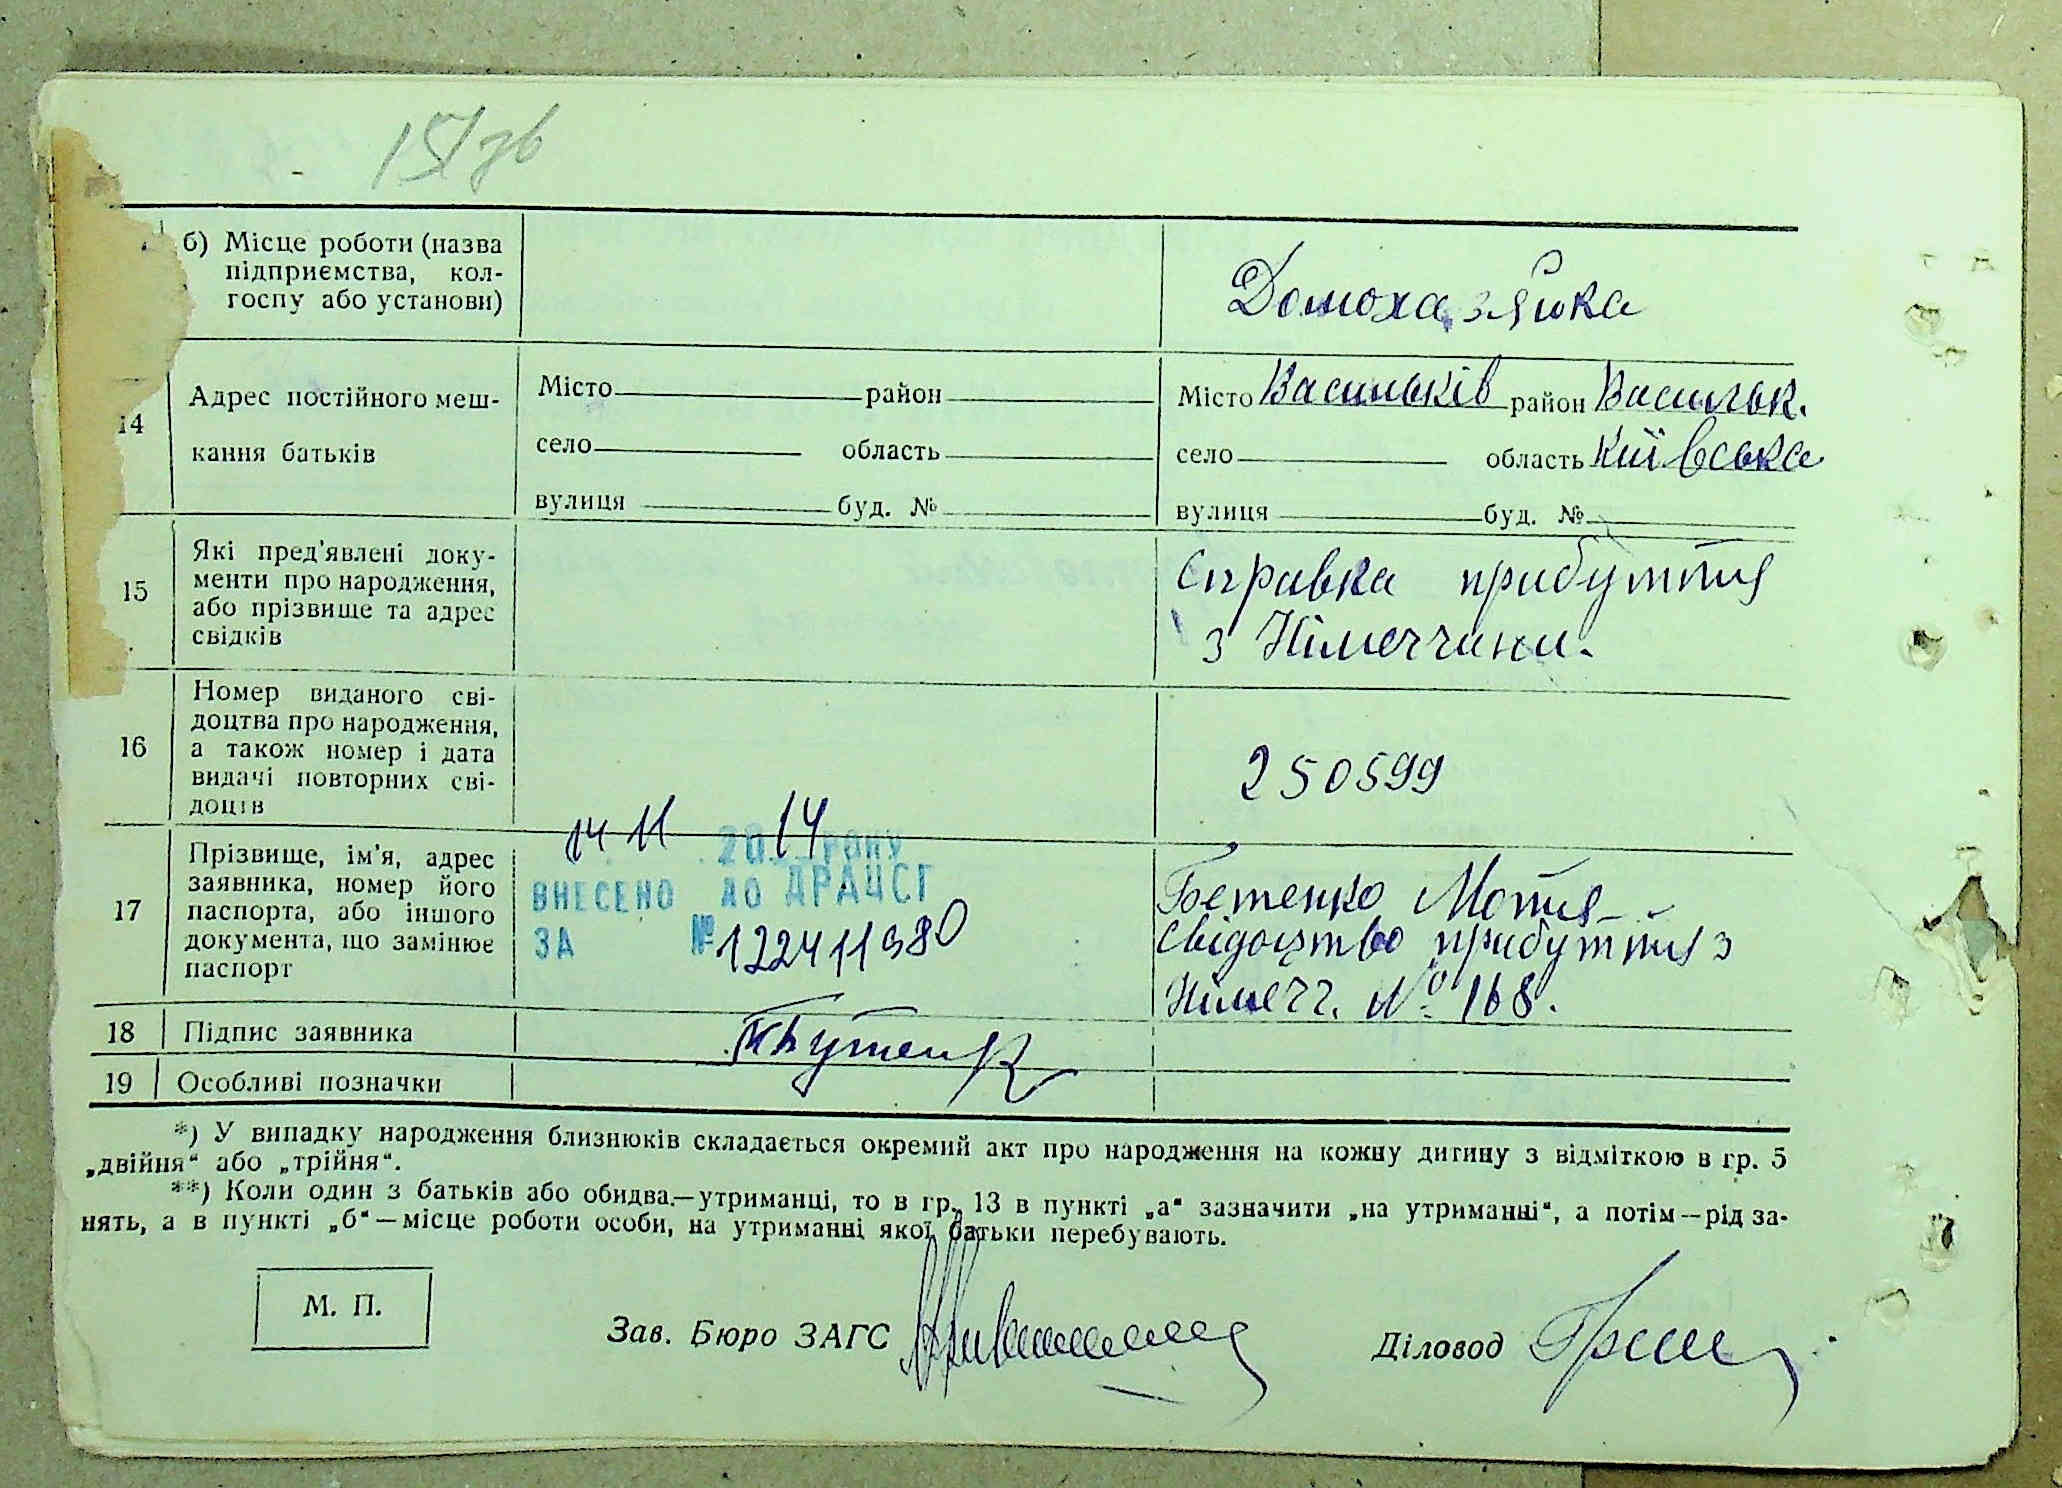 151 зв
б) Місце роботи (назва
підприємства, кол-
госпу або установи)
Домохазяйка
14
Адрес постійного меш-
кання батьків
Місто район
село область
вулиця буд. №
Місто Васильків район Васильк.
село область Київська
вулиця буд. №
15
Які пред'явлені доку-
менти про народження,
або прізвище та адрес
свідків
Справка прибуття
з Німеччини.
16
Номер виданого сві-
доцтва про народження,
а також номер і дата
видачі повторних сві-
доцтв
250599
17
Прізвище, ім'я, адрес
заявника, номер його
паспорта, або іншого
документа, що замінює
паспорт
14 11 2014 року
ВНЕСЕНО ДО ДРАЦСГ
ЗА №122411980
Бетенко Мотя
Свідоцтво прибуття з
Німечч. № 168.
18 Підпис заявника
19 Особливі позначки
*) У випадку народження близнюків складається окремий акт про народження на кожну дитину з відміткою в гр. 5
„двійня“ або „трійня“.
**) Коли один з батьків або обидва—утриманці, то в гр. 13 в пункті „а“ зазначити „на утриманні“, а потім—рід за-
нять, а в пункті „б“—місце роботи особи, на утриманні якої батьки перебувають.
М. П.
Зав. Бюро ЗАГС
Діловод